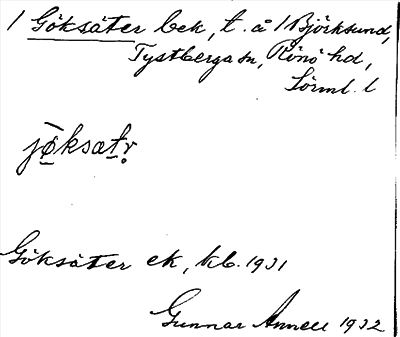 1 Göksäter bek, t. å 1 Björksund,
Tystberga sn, Rönö hd,
Sörml. l
jø̄ksætr̥
Göksäter ek, kb. 1931
Gunnar Annell 1932